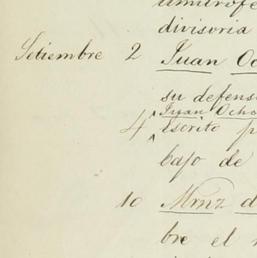 divisoria
Setiembre 2 Juan Oc
su defens
Juan Ocho
4 Escrito p
bajo de
10 Mrnz d
bre el